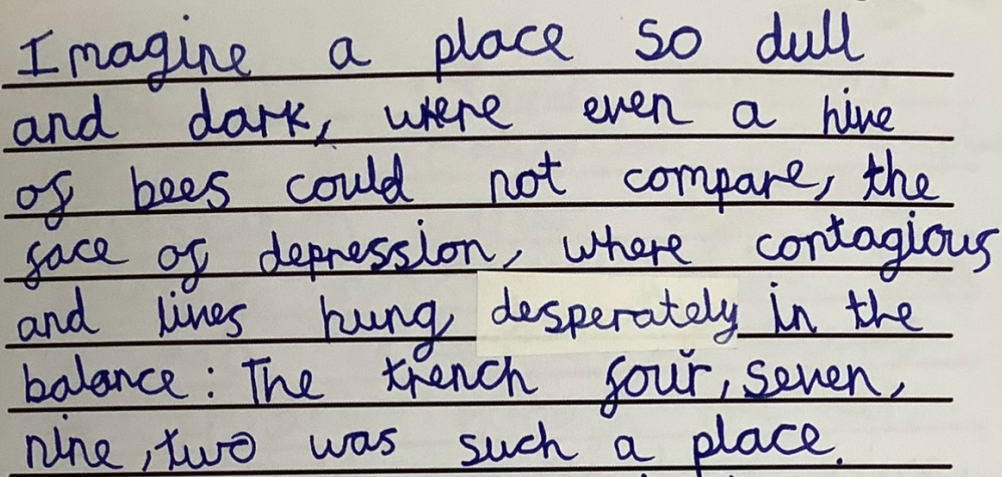 Imagine a place so dull
and dark, where even a hive
of bees could not compare, the
face of depression, where contagious
and lives hung desperately in the
balance: The trench four, seven,
nine, two was such a place.